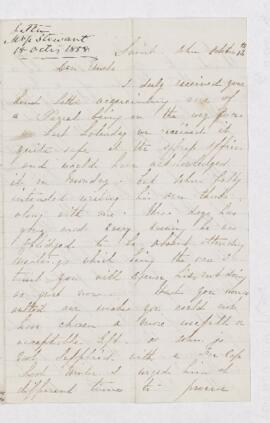 Letter
Mrs Stewart
18 Octr 1858
Saint John October
Dear Uncle
I duly received your
kind letter acquainting me of
a Parcel being on the way for us
last Saturday we received it
quite safe at the express office
and would have acknowledged
it on Monday but John fully
intended writing his own thanks
along with mine these days has
gone and every evening he was
obliged to be absent attending
meetings which being the case I
trust you will excuse him not doing
so just now Such you many
you could not
have chosen a more useful &
acceptable gift as John is
not supplied with a Fur Cap
I urged him at
different times to procure